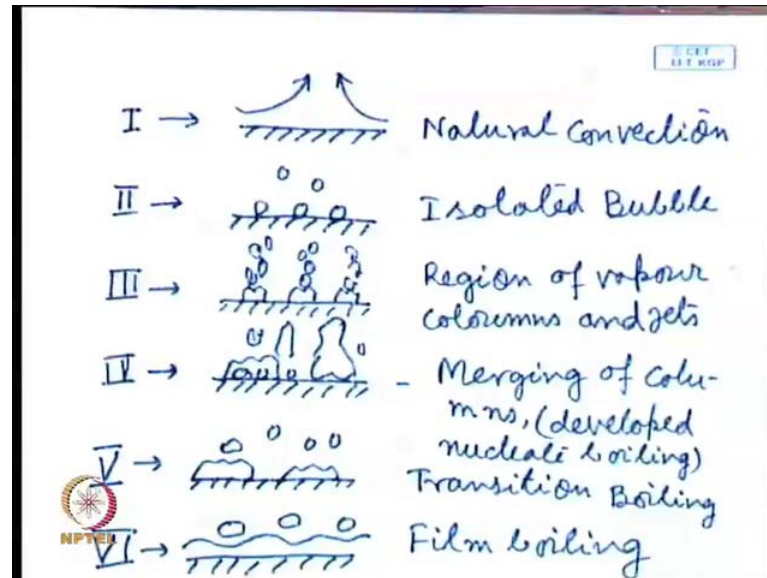 © CET
I.I.T. KGP
I → Natural Convection
II → Isolated Bubble
III → Region of vapour
coloumns and jets
IV → - Merging of colu-
mns, (developed
nucleate boiling)
V → Transition Boiling
VI → Film boiling
NPTEL